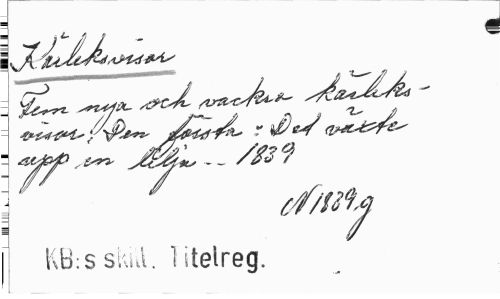 Kärleksvisor
Fem nya och vackra kärleks-
visor. Den första: Det växte
upp en lilja -- 1839
N 1839.g
KB:s skill. Titelreg.